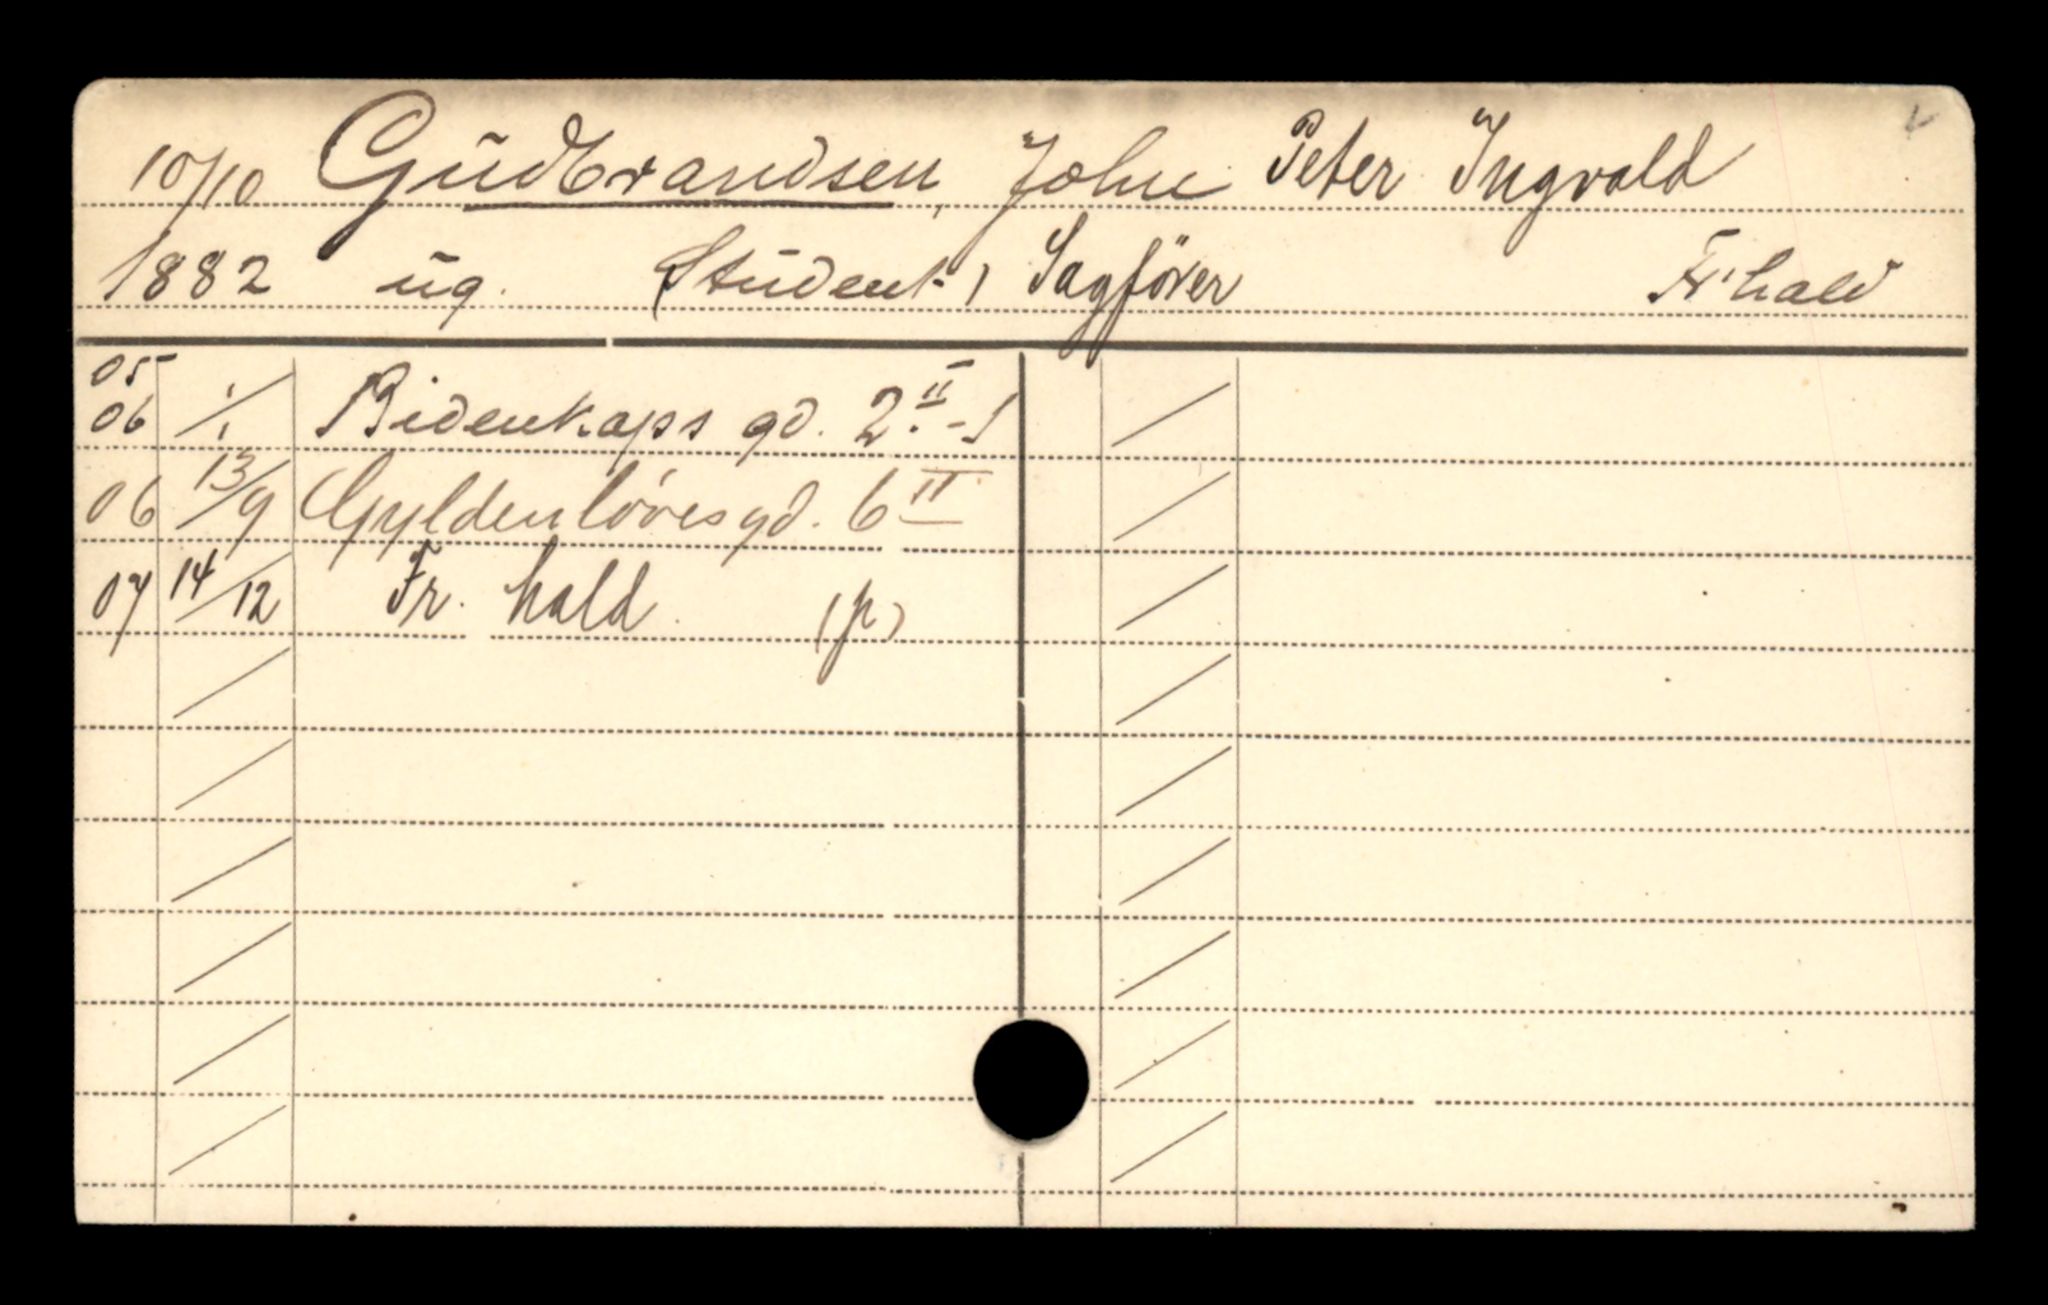 10/10 Gudbrandsen, John Peter Ingvald
1882 ug. (Student) Sagfører Fr.hald
05
06 1/1 Bidenkaps gd. 2.II-1
06 13/9 Gyldenløvesgd. 6 II
07 14/12 Fr. hald. (p)